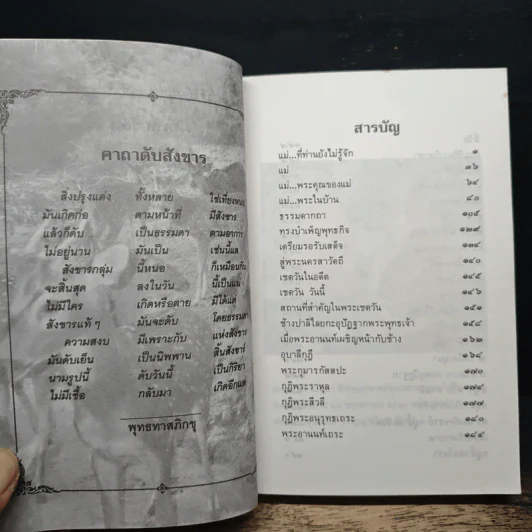 คาถาดับสังขาร
สิ่งปรุงแต่ง ทั้งหลาย ใช่เที่ยงทน
มันเกิดก่อ ตามหน้าที่ มีสังขาร
แล้วก็ดับ เป็นธรรมดา ตามอาการ
ไม่อยู่นาน มันเป็น เช่นนี้แล
สังขารกลุ่ม นี้หนอ ก็เหมือนกัน
จะสิ้นสุด ลงในวัน นี้เป็นแน่
ไม่มีใคร เกิดหรือตาย มีได้แต่
สังขารแท้ ๆ มันจะดับ โดยธรรมดา
ความสงบ มีเพราะกับ แห่งสังขาร
มันดับเย็น เป็นนิพพาน สิ้นสังขาร์
นามรูปนี้ ดับวันนี้ เป็นกิริยา
ไม่มีเชื้อ กลับมา เกิดอีกแล
พุทธทาสภิกขุ
สารบัญ
แม่...ที่ท่านยังไม่รู้จัก ๑
แม่ ๓๖
แม่...พระคุณของแม่ ๖๔
แม่...พระในบ้าน ๘๐
ธรรมดากถา ๑๐๕
ทรงบำเพ็ญพุทธกิจ ๑๒๙
เตรียมรอรับเสด็จ ๑๓๘
สู่พระนครสาวัตถี ๑๔๐
เชตวันในอดีต ๑๔๕
เชตวัน วันนี้ ๑๔๖
สถานที่สำคัญในพระเชตวัน ๑๕๑
ช้างปาลิไลยกะอุปัฏฐากพระพุทธเจ้า ๑๕๔
เมื่อพระอานนท์เผชิญหน้ากับช้าง ๑๖๒
อุบาลีกุฎี ๑๖๘
พระกุมารกัสสปะ ๑๗๐
กุฎีพระราหุล ๑๗๔
กุฎีพระสีวลี ๑๗๗
กุฎีพระอนุรุทธเถระ ๑๘๐
พระอานนท์เถระ ๑๘๕